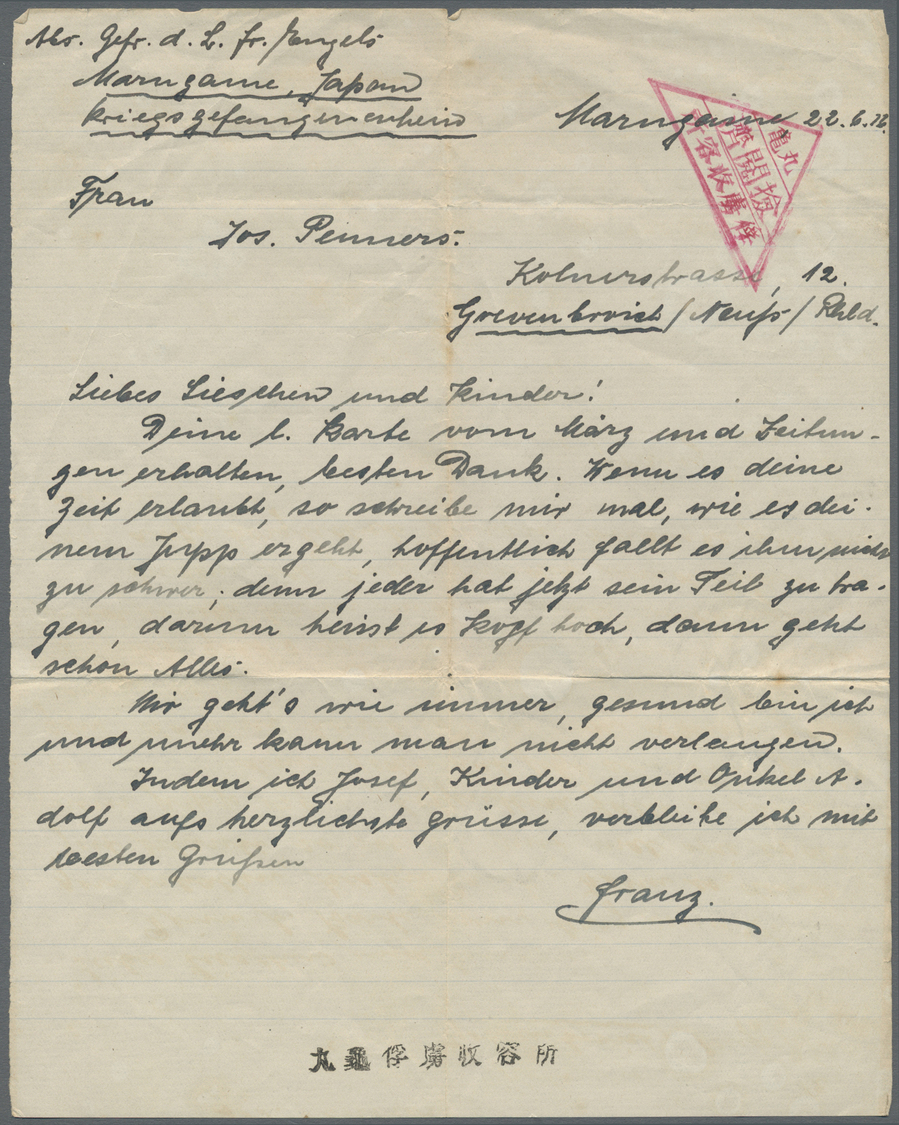 Abs. Gefr. d. L. Fr. Engels
Marugame, Japan
Kriegsgefangenenheim
Marugame 22. 6. 16.
丸亀
検閲済
俘虜収容所
Frau
Jos. Penners.
Kolnerstrasse, 12.
Grevenbroich / Neuss / Rhld.
Liebes Lieschen und Kinder!
Deine l. Karte vom März und Zeitun-
gen erhalten, besten Dank. Wenn es deine
Zeit erlaubt, so schreibe mir mal, wie es dei-
nem Jupp ergeht, hoffentlich fällt es ihm nicht
zu schwer; denn jeder hat jetzt sein Teil zu tra-
gen, darum heisst es Kopf hoch, dann geht
schon Alles.
Mir geht's wie immer, gesund bin ich
und mehr kann man nicht verlangen.
Indem ich Josef, Kinder und Onkel A-
dolf aufs herzlichste grüsse, verbleibe ich mit
besten Grüßen
Franz.
丸龜俘虜收容所